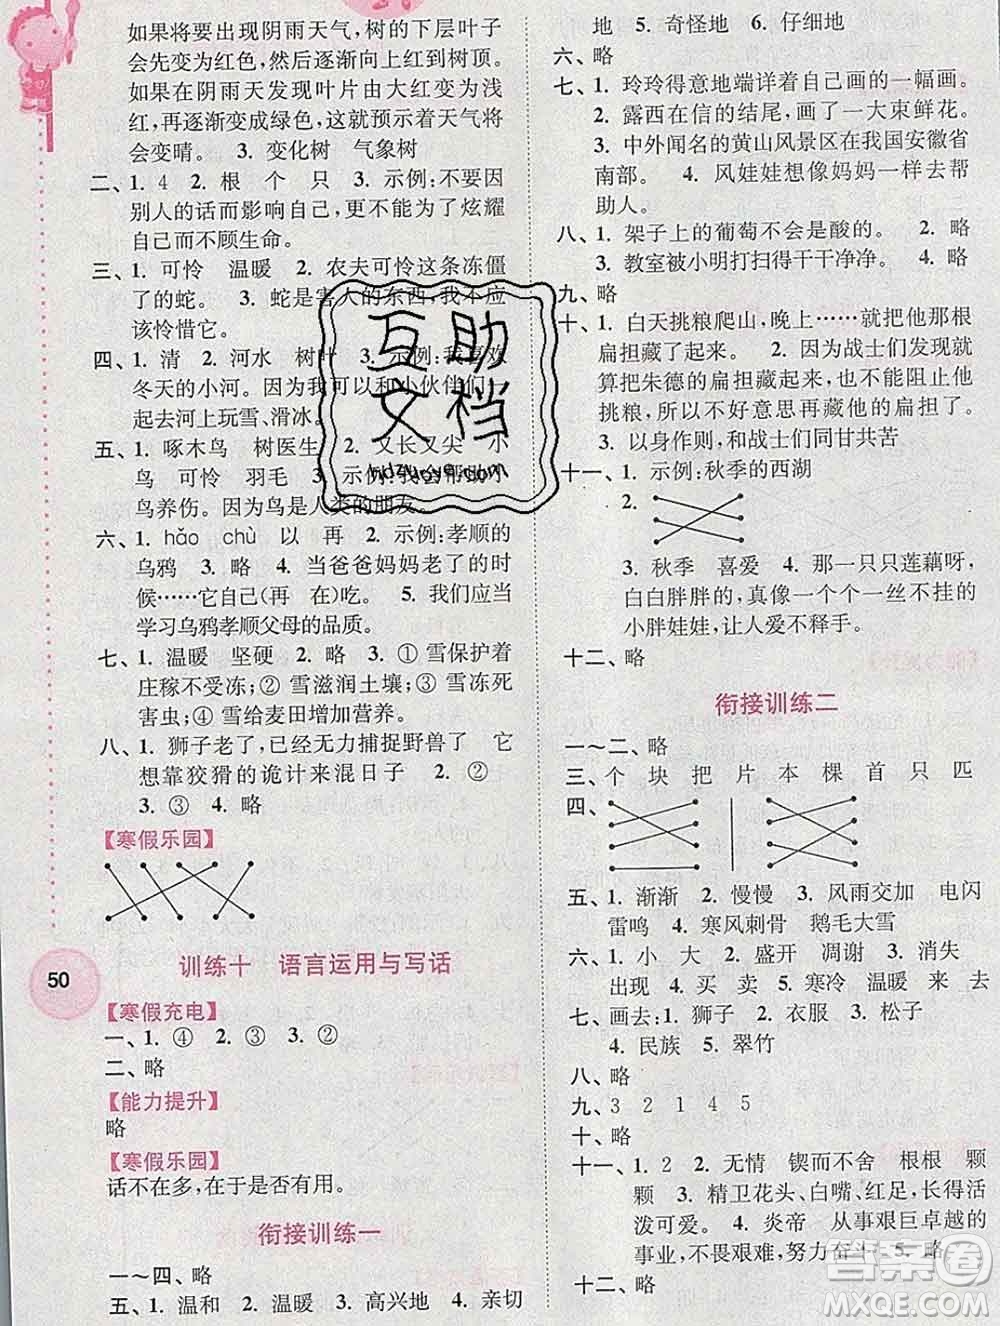 如果将要出现阴雨天气,树的下层叶子
会先变为红色,然后逐渐向上移到树顶。
如果在阴雨天发现叶片由大红变为浅
红,再逐渐变成绿色,这就预示着天气将
会变晴。 3. 变化树 气象树
二、1. 4 2. 根 个 只 3. 示例:不要因
别人的话而影响自己,更不能为了炫耀
自己而不顾生命。
三、1. 可怜 温暖 2. 农夫可怜这条冻僵
了的蛇。 3. 蛇是害人的东西,我不应
该怜惜它。
四、1. 清 2. 河水 树叶 3. 示例:我喜欢
冬天的小河。因为我可以和小伙伴们一
起去河上玩雪、滑冰。
五、1. 啄木鸟 树医生 2. 又长又尖 小
鸟 可怜 羽毛 3. 示例:我会帮助小
鸟养伤。鸟是人类的朋友。
六、1. hǎo chù 以 再 2. 示例:孝顺的
乌鸦 3. 略 4. 当爸爸妈妈老了的时
候……它自己(再 在)吃。 5. 我们应当
学习乌鸦孝顺父母的品质。
七、1. 温暖 坚硬 2. 略 3. ① 雪保护着
庄稼不受冻;② 雪滋润土壤;③ 雪冻死
害虫;④ 雪给麦田增加营养。
八、1. 狮子老了,已经无力捕捉野兽了 它
想靠狡猾的诡计来混日子 2. ②
3. ③ 4. 略
【寒假乐园】
50
训练十 语言运用与写话
【寒假充电】
一、1. ④ 2. ③ 3. ②
二、略
【能力提升】
略
【寒假乐园】
话不在多,在于是否有用。
衔接训练一
一～四、略
五、1. 温和 2. 温暖 3. 高兴地 4. 亲切
地 5. 奇怪地 6. 仔细地
六、略
七、1. 玲玲得意地端详着自己画的一幅画。
2. 露西在信的结尾,画了一大束鲜花。
3. 中外闻名的黄山风景区在我国安徽省
南部。 4. 风娃娃想像妈妈一样去帮
助人。
八、1. 架子上的葡萄不会是酸的。 2. 略
3. 教室被小明打扫得干干净净。
九、略
十、1. 白天挑粮爬山,晚上……就把他那根
扁担藏了起来。 2. 因为战士们觉得就
算把朱德的扁担藏起来,也不能阻止他
挑粮,就不好意思再藏他的扁担了。
3. 以身作则,和战士们同甘共苦
十一、1. 示例:秋季的西湖
2.
3. 秋季 喜爱 4. 那一只只莲藕呀,
白白胖胖的,真像一个个一丝不挂的
小胖娃娃,让人爱不释手。
十二、略
衔接训练二
一～二、略
三、个 块 把 片 本 棵 首 只 匹
四、
五、1. 渐渐 2. 慢慢 3. 风雨交加 电闪
雷鸣 4. 寒风刺骨 鹅毛大雪
六、1. 小 大 2. 盛开 凋谢 3. 消失
出现 4. 买 卖 5. 寒冷 温暖 来 去
七、画去:1. 狮子 2. 衣服 3. 松子
4. 民族 5. 翠竹
八、略
九、3 2 1 4 5
十、略
十一、1. 2 2. 无情 锲而不舍 根根 颗
颗 3. 精卫花头、白嘴、红足,很是活
泼可爱。 4. 炎帝 从事艰巨卓越的
事业,不畏艰难,努力奋斗 5. 略
十二、略
互助
文档
hdzuoye.com
答案圈
MXQE.COM